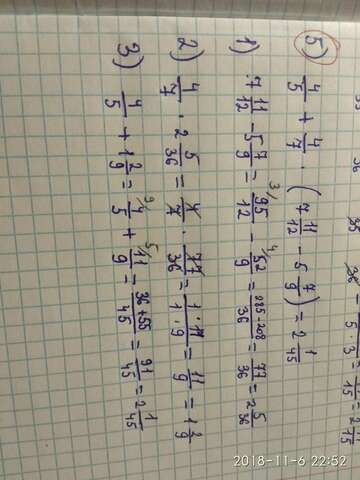 5) 4/5 + 4/7 · (7 11/12 - 5 7/9) = 2 1/45
1) 7 11/12 - 5 7/9 = 3/ 95/12 - 4/ 52/9 = 285-208/36 = 77/36 = 2 5/36
2) 4/7 · 2 5/36 = 4/7 · 77/36 = 1·11/1·9 = 11/9 = 1 2/9
3) 4/5 + 1 2/9 = 9/ 4/5 + 5/ 11/9 = 36+55/45 = 91/45 = 2 1/45
2018-11-6 22:52